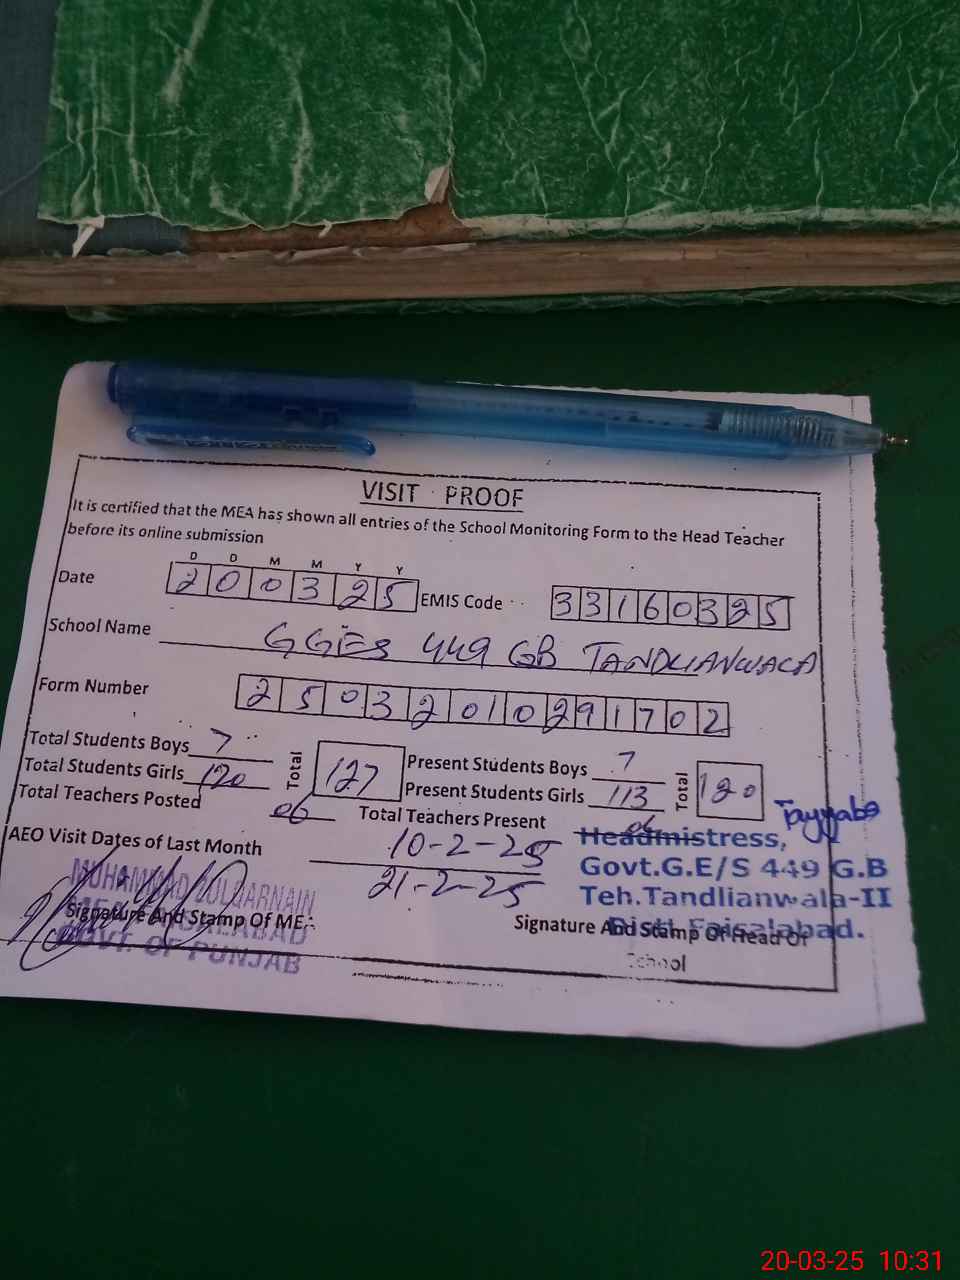 VISIT PROOF
It is certified that the MEA has shown all entries of the School Monitoring Form to the Head Teacher
before its online submission
D D M M Y Y
Date 200325 EMIS Code 33160325
School Name GGES 449 GB TANDLIANWALA
Form Number 25032010291702
Total Students Boys 7 Total 127 Present Students Boys 7 Total 120
Total Students Girls 120 Present Students Girls 113
Total Teachers Posted 06 Total Teachers Present 06
Tayyaba
AEO Visit Dates of Last Month 10-2-25
21-2-25
Headmistress,
Govt.G.E/S 449 G.B
Teh.Tandlianwala-II
Distt. Faisalabad.
MUHAMMAD ZULQARNAIN
MEA FAISALABAD
GOVT. OF PUNJAB
Signature And Stamp Of MEA:
Signature And Stamp Of Head Of
School
20-03-25 10:31